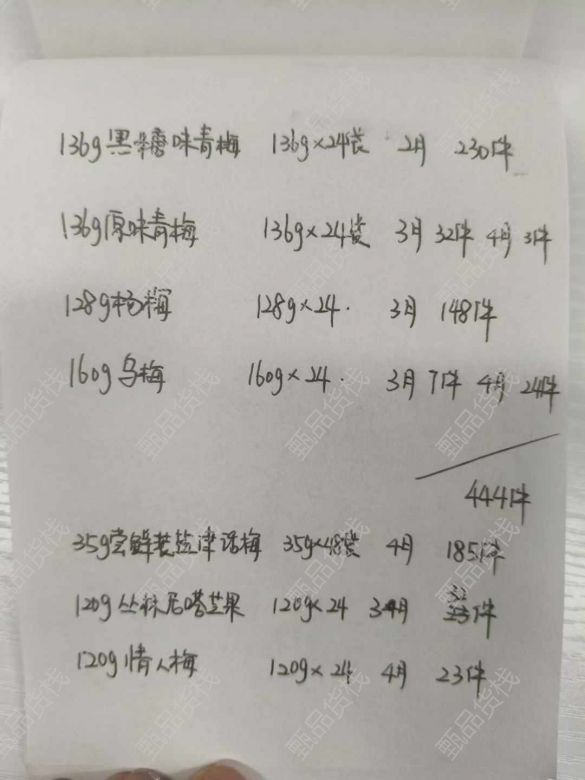 136g黑糖味青梅 136g×24袋 2月 230件
136g原味青梅 136g×24袋 3月 32件 4月 3件
128g杨梅 128g×24. 3月 148件
160g乌梅 160g×24. 3月 7件 4月 24件
444件
35g尝鲜装盐津话梅 35g×48袋 4月 185件
120g丛林尼嗒芒果 120g×24 3-4月 32件
120g情人梅 120g×24 4月 23件
甄品货栈